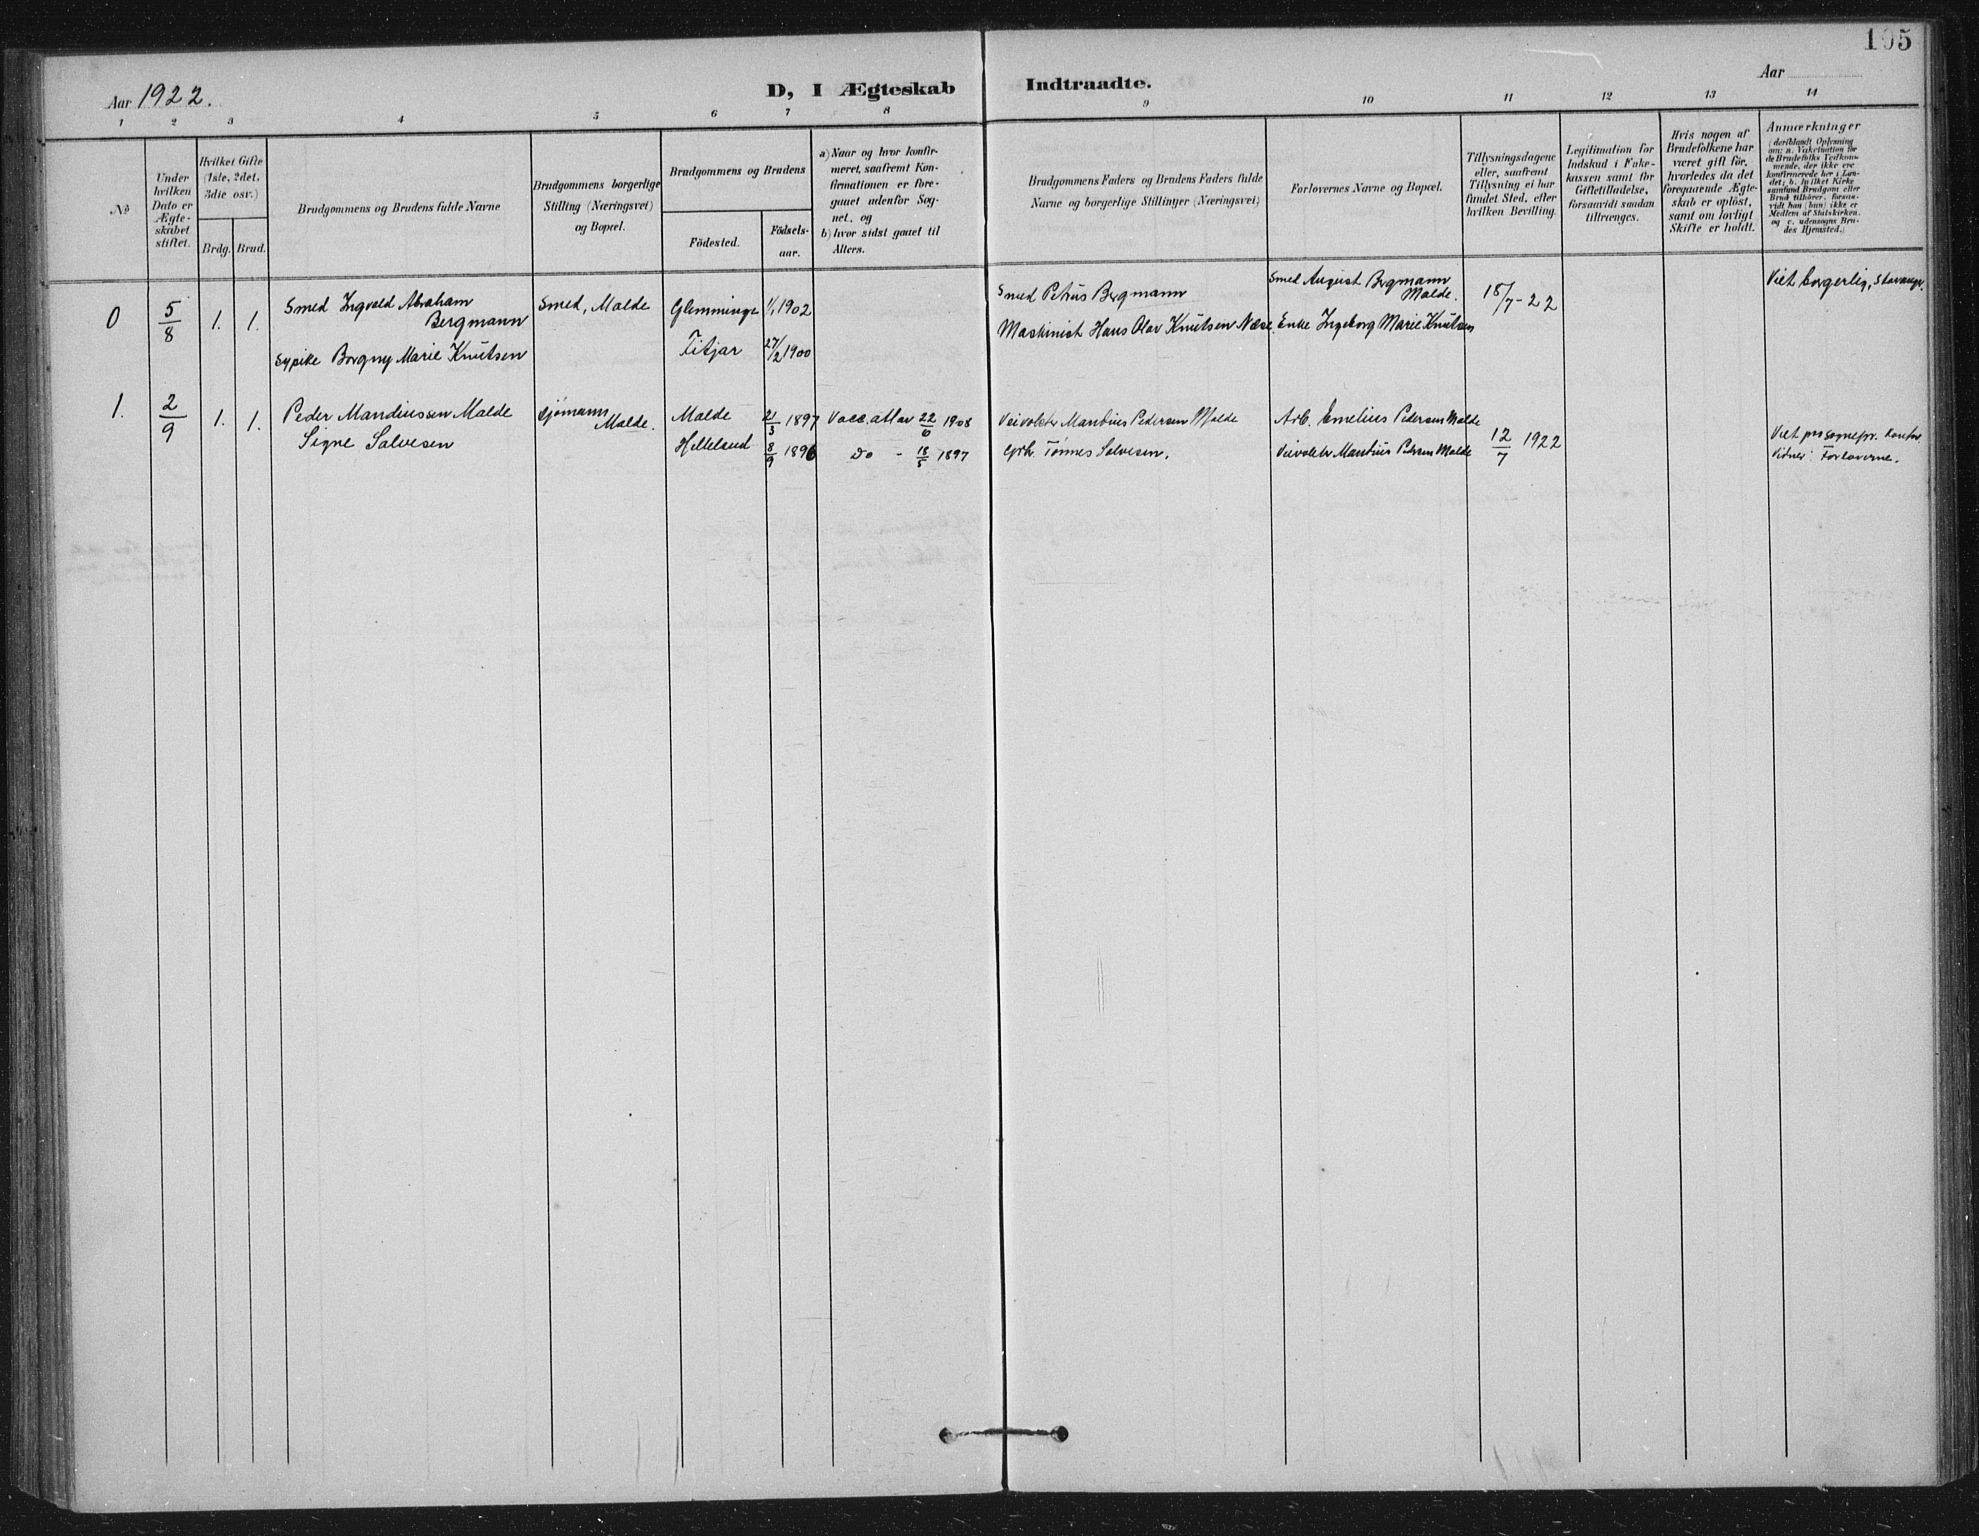 105
Aar 1922.
D, I Ægteskab Indtraadte.
Aar
1 2 3 4 5 6 7 8 9 10 11 12 13 14
No
Under hvilken Dato er Ægte-skabet stiftet.
Hvilket Gifte (1ste, 2det, 3die osv.)
Brdg. Brud.
Brudgommens og Brudens fulde Navne
Brudgommens borgerlige Stilling (Næringsvei) og Bopæl.
Brudgommens og Brudens
Födested.
Födsels-aar.
a) Naar og hvor konfir-meret, saafremt Kon-firmationen er fore-gaaet udenfor Sog-net, og
b) hvor sidst gaaet til Alters.
Brudgommens Faders og Brudens Faders fulde Navne og borgerlige Stillinger (Næringsvei)
Forlovernes Navne og Bopæl.
Tillysningsdagene eller, saafremt Tillysning ei har fundet Sted, efter hvilken Bevilling.
Legitimation for Indskud i Enke-kassen samt for Giftetilladelse, forsaavidt saadan tiltrænges.
Hvis nogen af Brudefolkene har været gift för, hvorledes da det foregaaende Ægte-skab er oplöst, samt om lovligt Skifte er holdt.
Anmærkninger (deriblandt Oplysning om: a. Vakcination for de Brudefolks Vedkom-mende, der ikke ere konfirmerede her i Lan-det; b. hvilket Kirke samfund Brudgom eller Brud tilhører, forsaa-vidt han (hun) ikke er Medlem af Statskirken, og c. udensogns Bru-des Hjemsted.)
0 5/8 1. 1.
Smed Ingvald Abraham
Bergmann
Sypike Borgny Marie Knutsen
Smed, Malde
Glemminge 1/1 1902
Fitjar 27/2 1900
Smed Petrus Bergmann
Maskinist Hans Olav Knutsen Næse.
Smed August Bergmann
Malde.
Enke Ingeborg Marie Knutsen
18/7-22
Viet borgerlig, Stavanger.
1. 2/9 1. 1.
Peder Mandiussen Malde
Signe Salvesen
Sjømann
Malde.
Malde 21/3 1897
Helleland 8/9 1896
Vacc. atlar 22/6 1908
Do - 18/5 1897
Veivokter Mandius Pedersen Malde
Tønnes Salvesen.
Arb. Emelius Pedersen Malde
Veivokter Mandius Pedersen Malde
12/7 1922
Viet
Vidner: Forloverne.